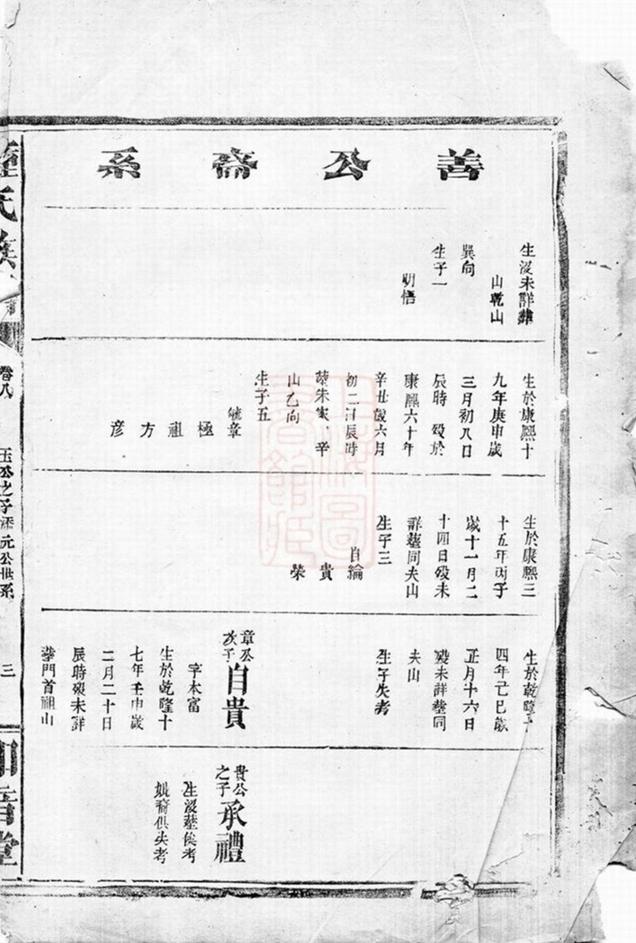 善公裔系
生沒未詳葬
山乾山
巽向
生子一
明悟
生於康熙十
九年庚申歲
三月初八日
辰時 歿於
康熙六十年
辛丑歲六月
初二日辰時
山乙向
生子五
毓章
極
祖
方
彦
生於康熙三
十五年丙子
歲十一月二
十四日歿未
詳葬同夫山
生子三
自綸
貴
榮
生於乾隆十
四年己巳歲
正月十六日
歿未詳葬同
夫山
生子失考
章公
次子
自貴
字本富
生於乾隆十
七年壬申歲
二月二十日
辰時歿未詳
葬門首祖山
貴公
之子
承禮
生沒葬俟考
娶裔俱失考
氏族
卷八
玉公之子添元公世系
三
音堂